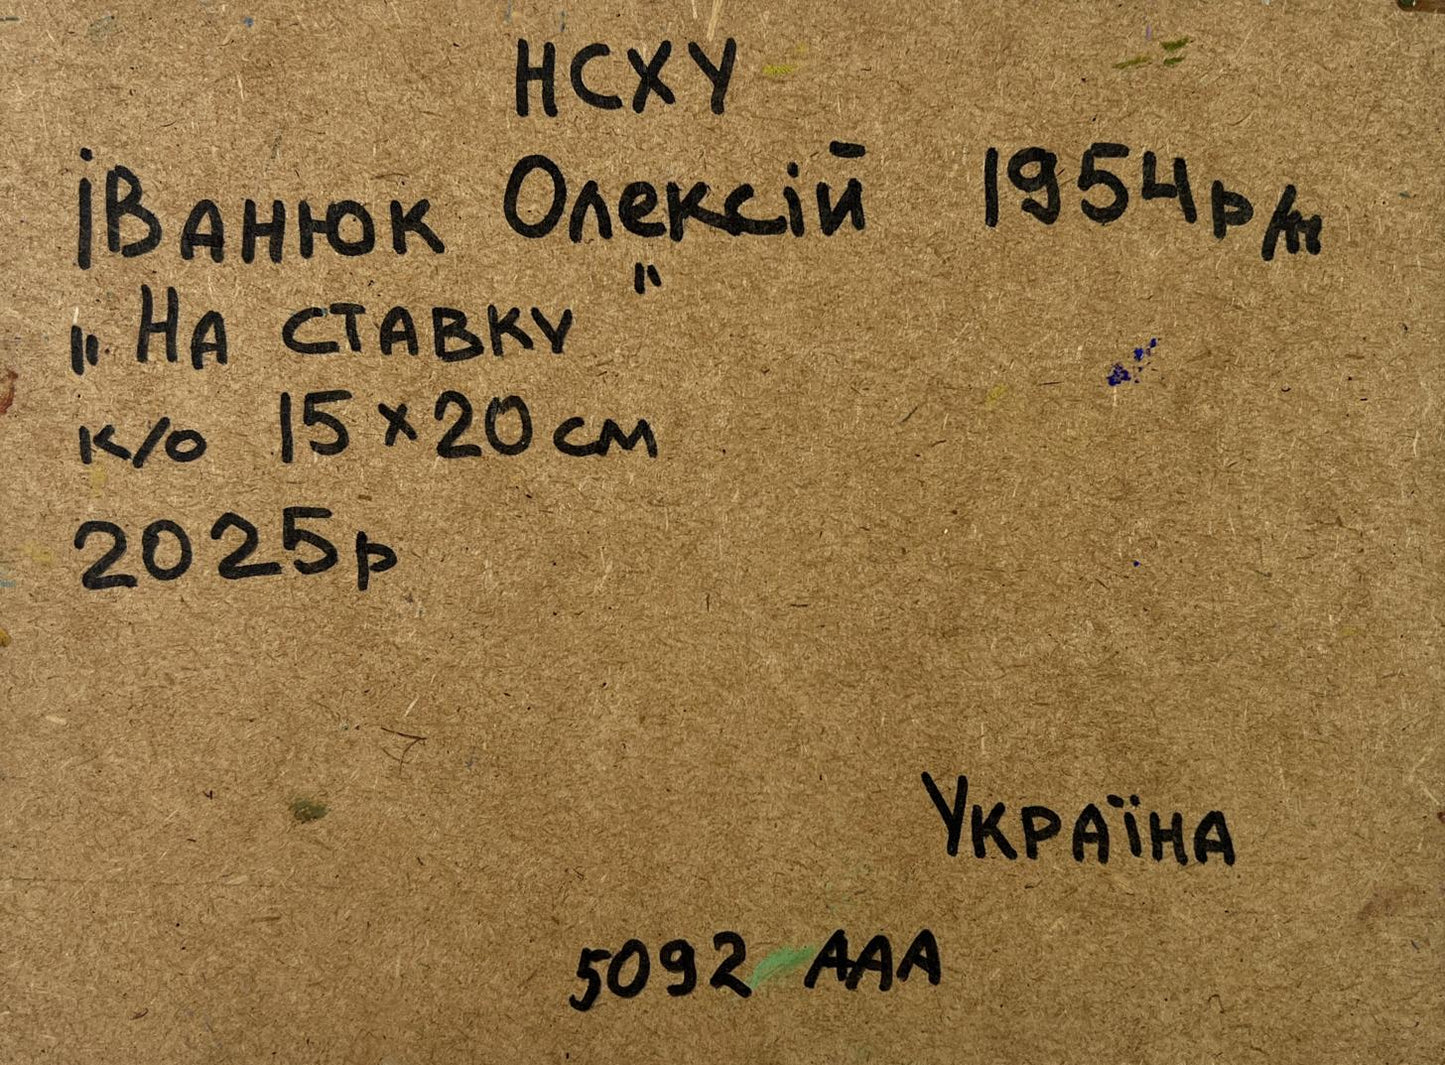 НСХУ
Іванюк Олексій 1954 р/н
„На ставку"
к/о 15×20 см
2025р
Україна
5092 ААА